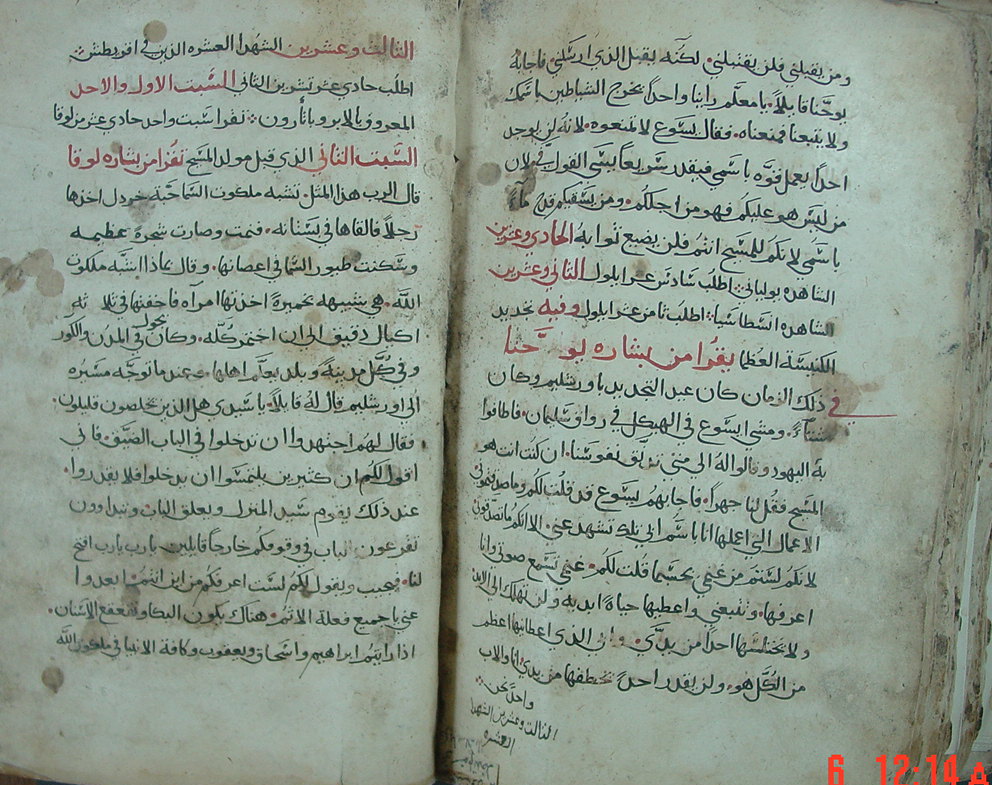 ومن يقبلني فلن يقتبلني. لكنه يقبل الذي ارسلني فاجابه
يوحنا قايلاً. يا معلم راينا واحداً يخرج الشياطين باسمك
ولا يتبعنا فمنعناه. فقال يسوع لا تمنعوه. لانه لن يوجد
احداً يعمل قوه باسمي فيقدر سريعاً يسي القول في لان
من ليس هو عليكم فهو من اجلكم. ومن يسقيكم قدح ماءً
باسمي لانكم للمسيح انتم فلن يضيع ثوابه الحادي وعشرين
الشاهده يولياني اطلب سادس عشر ايلول الثاني وعشرين
الشاهده انسطاسيا اطلب ثامن عشر ايلول وفيه تجديد
الكنيسة العظما يقرا من بشاره يوحنا
في ذلك الزمان كان عيد التجديد باورشليم وكان
شتاءً. ومشي ايسوع في الهيكل في رواق سليمان. فاطافوا
به اليهود وقالوا له الي متي تزلق نفوسنا. ان كنت انت هو
المسيح فقل لنا جهراً. فاجابهم يسوع قد قلت لكم وما صدقتموني
الاعمال التي اعملها انا باسم ابي تلك تشهد عني. الا انكم ما تصدقوني
لانكم لستم من غنمي بحسبما قلت لكم. غنمي تسمع صوتي وانا
اعرفها. وتتبعني واعطيها حياة ابديه ولن تهلك الي الابد
ولا يختلسها احداً من يدي. وابي الذي اعطانيها اعظم
من الكل هو. ولن يقدر احداً يخطفها من يدي انا والاب
واحد نحن
الثالث وعشرين الشهدا
العشره
الثالث وعشرين الشهدا العشره الذين في اقريطش
اطلب حادي عشر تشرين الثاني السبت الاول والاحد
المعروق بالابرو باتارون نقرا سبت واحد حادي عشر من لوقا
السبت الثاني الذي قبل مولد المسيح نقرا من بشاره لوقا
قال الرب هذا المثل. تشبه ملكوت السما حبة خردل اخذها
رجلاً فالقاها في بستانه. فنمت وصارت شجرة عظيمه
وسكنت طيور السما في اغصانها. وقال بماذا اشبه ملكوت
الله. هي شبيهه بخميرة اخذتها امراه فاخفتها في ثلاثه
اكيال دقيق الي ان اختمر كله. وكان يجول في المدن والكور
وفي كل مدينة وبلد يعلم اهلها. عند ما توجه مسيره
الي اورشليم قال له قايلاً. يا سيدي هل الذين يخلصون قليلون.
فقال لهم اجتهدوا ان تدخلوا في الباب الضيق. فاني
اقول لكم ان كثيرين يلتمسوا ان يدخلوا فلا يقدروا.
عند ذلك يقوم سيد المنزل ويغلق الباب وتبداوون
تقرعون الباب في وقوفكم خارجاً قايلين يارب يارب افتح
لنا. فيجيب ويقول لكم لست اعرفكم من اين انتم. ابعدوا
عني يا جميع فعلة الاثم. هناك يكون البكا وتقعقع الاسنان.
اذا رايتم ابراهيم واسحاق ويعقوب وكافة الانبيا في ملكوت الله
6 12:14 A